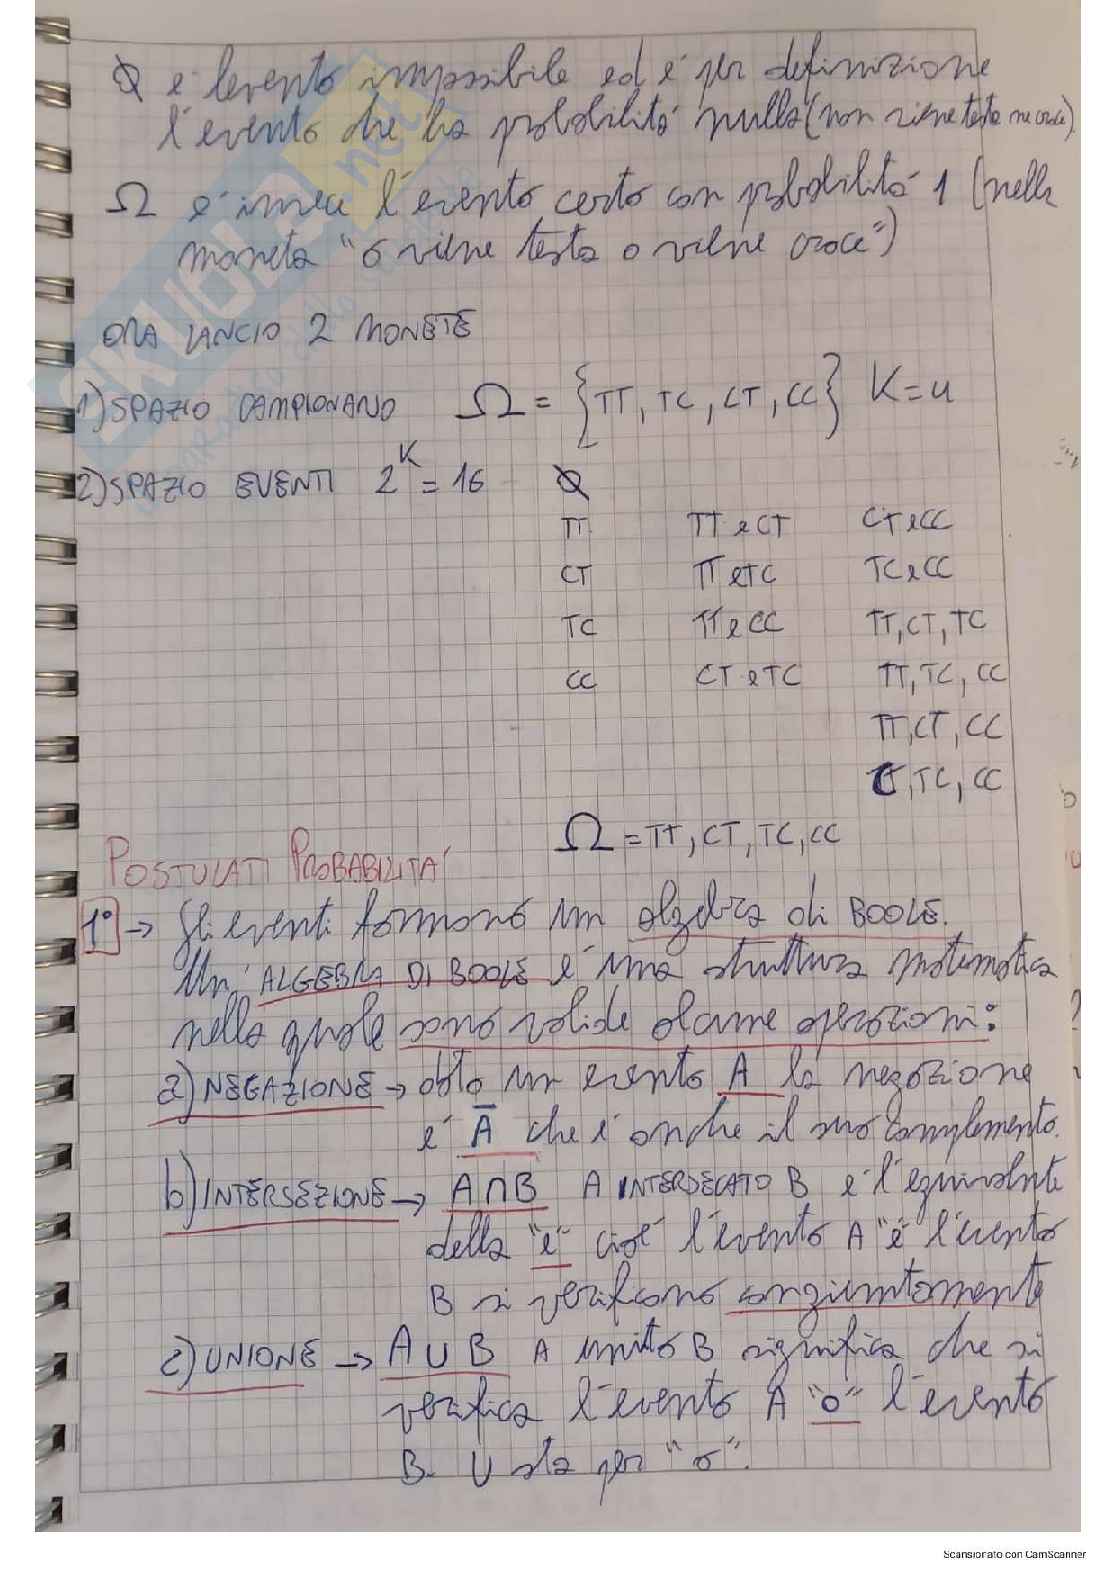 Ø è l'evento impossibile ed é per definizione
l'evento che ha probabilitá nulla (non viene testa ne croce)
Ω é invece l'evento certo con probabilitá 1 (nella
moneta "o viene testa o viene croce")
ORA LANCIO 2 MONETE
1) SPAZIO CAMPIONARIO Ω = {TT, TC, CT, CC} K=4
2) SPAZIO EVENTI 2^K = 16 Ø
TT TT e CT CT e CC
CT TT e TC TC e CC
TC TT e CC TT, CT, TC
CC CT e TC TT, TC, CC
TT, CT, CC
CT, TC, CC
Ω = TT, CT, TC, CC
POSTULATI PROBABILITA'
1° → Gli eventi formano un algebra di BOOLE.
Un' ALGEBRA DI BOOLE é una struttura matematica
nella quale sono valide alcune operazioni:
a) NEGAZIONE → dato un evento A la negazione
é Ā che é anche il suo complemento.
b) INTERSEZIONE → A∩B A INTERSECATO B e l'equivalente
della "e" cioé l'evento A "e" l'evento
B si verificano congiuntamente
c) UNIONE → A∪B A unito B significa che si
verifica l'evento A "o" l'evento
B. U sta per "o".
SKUOLA.net
Scansionato con CamScanner